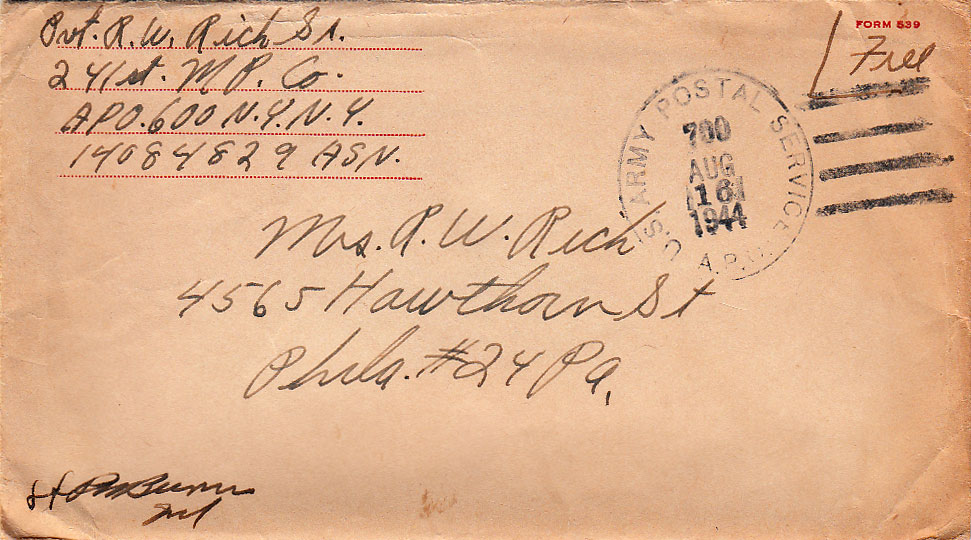 Pvt. R.W. Rich Sr.
241st. M.P. Co.
APO. 600 N.Y. N.Y.
14084829 ASN.
FORM 539
Free
U.S. ARMY POSTAL SERVICE
700
AUG
16
1944
A.P.O.
Mrs. R. W. Rich
4565 Hawthorn St
Phila. #24 Pa.